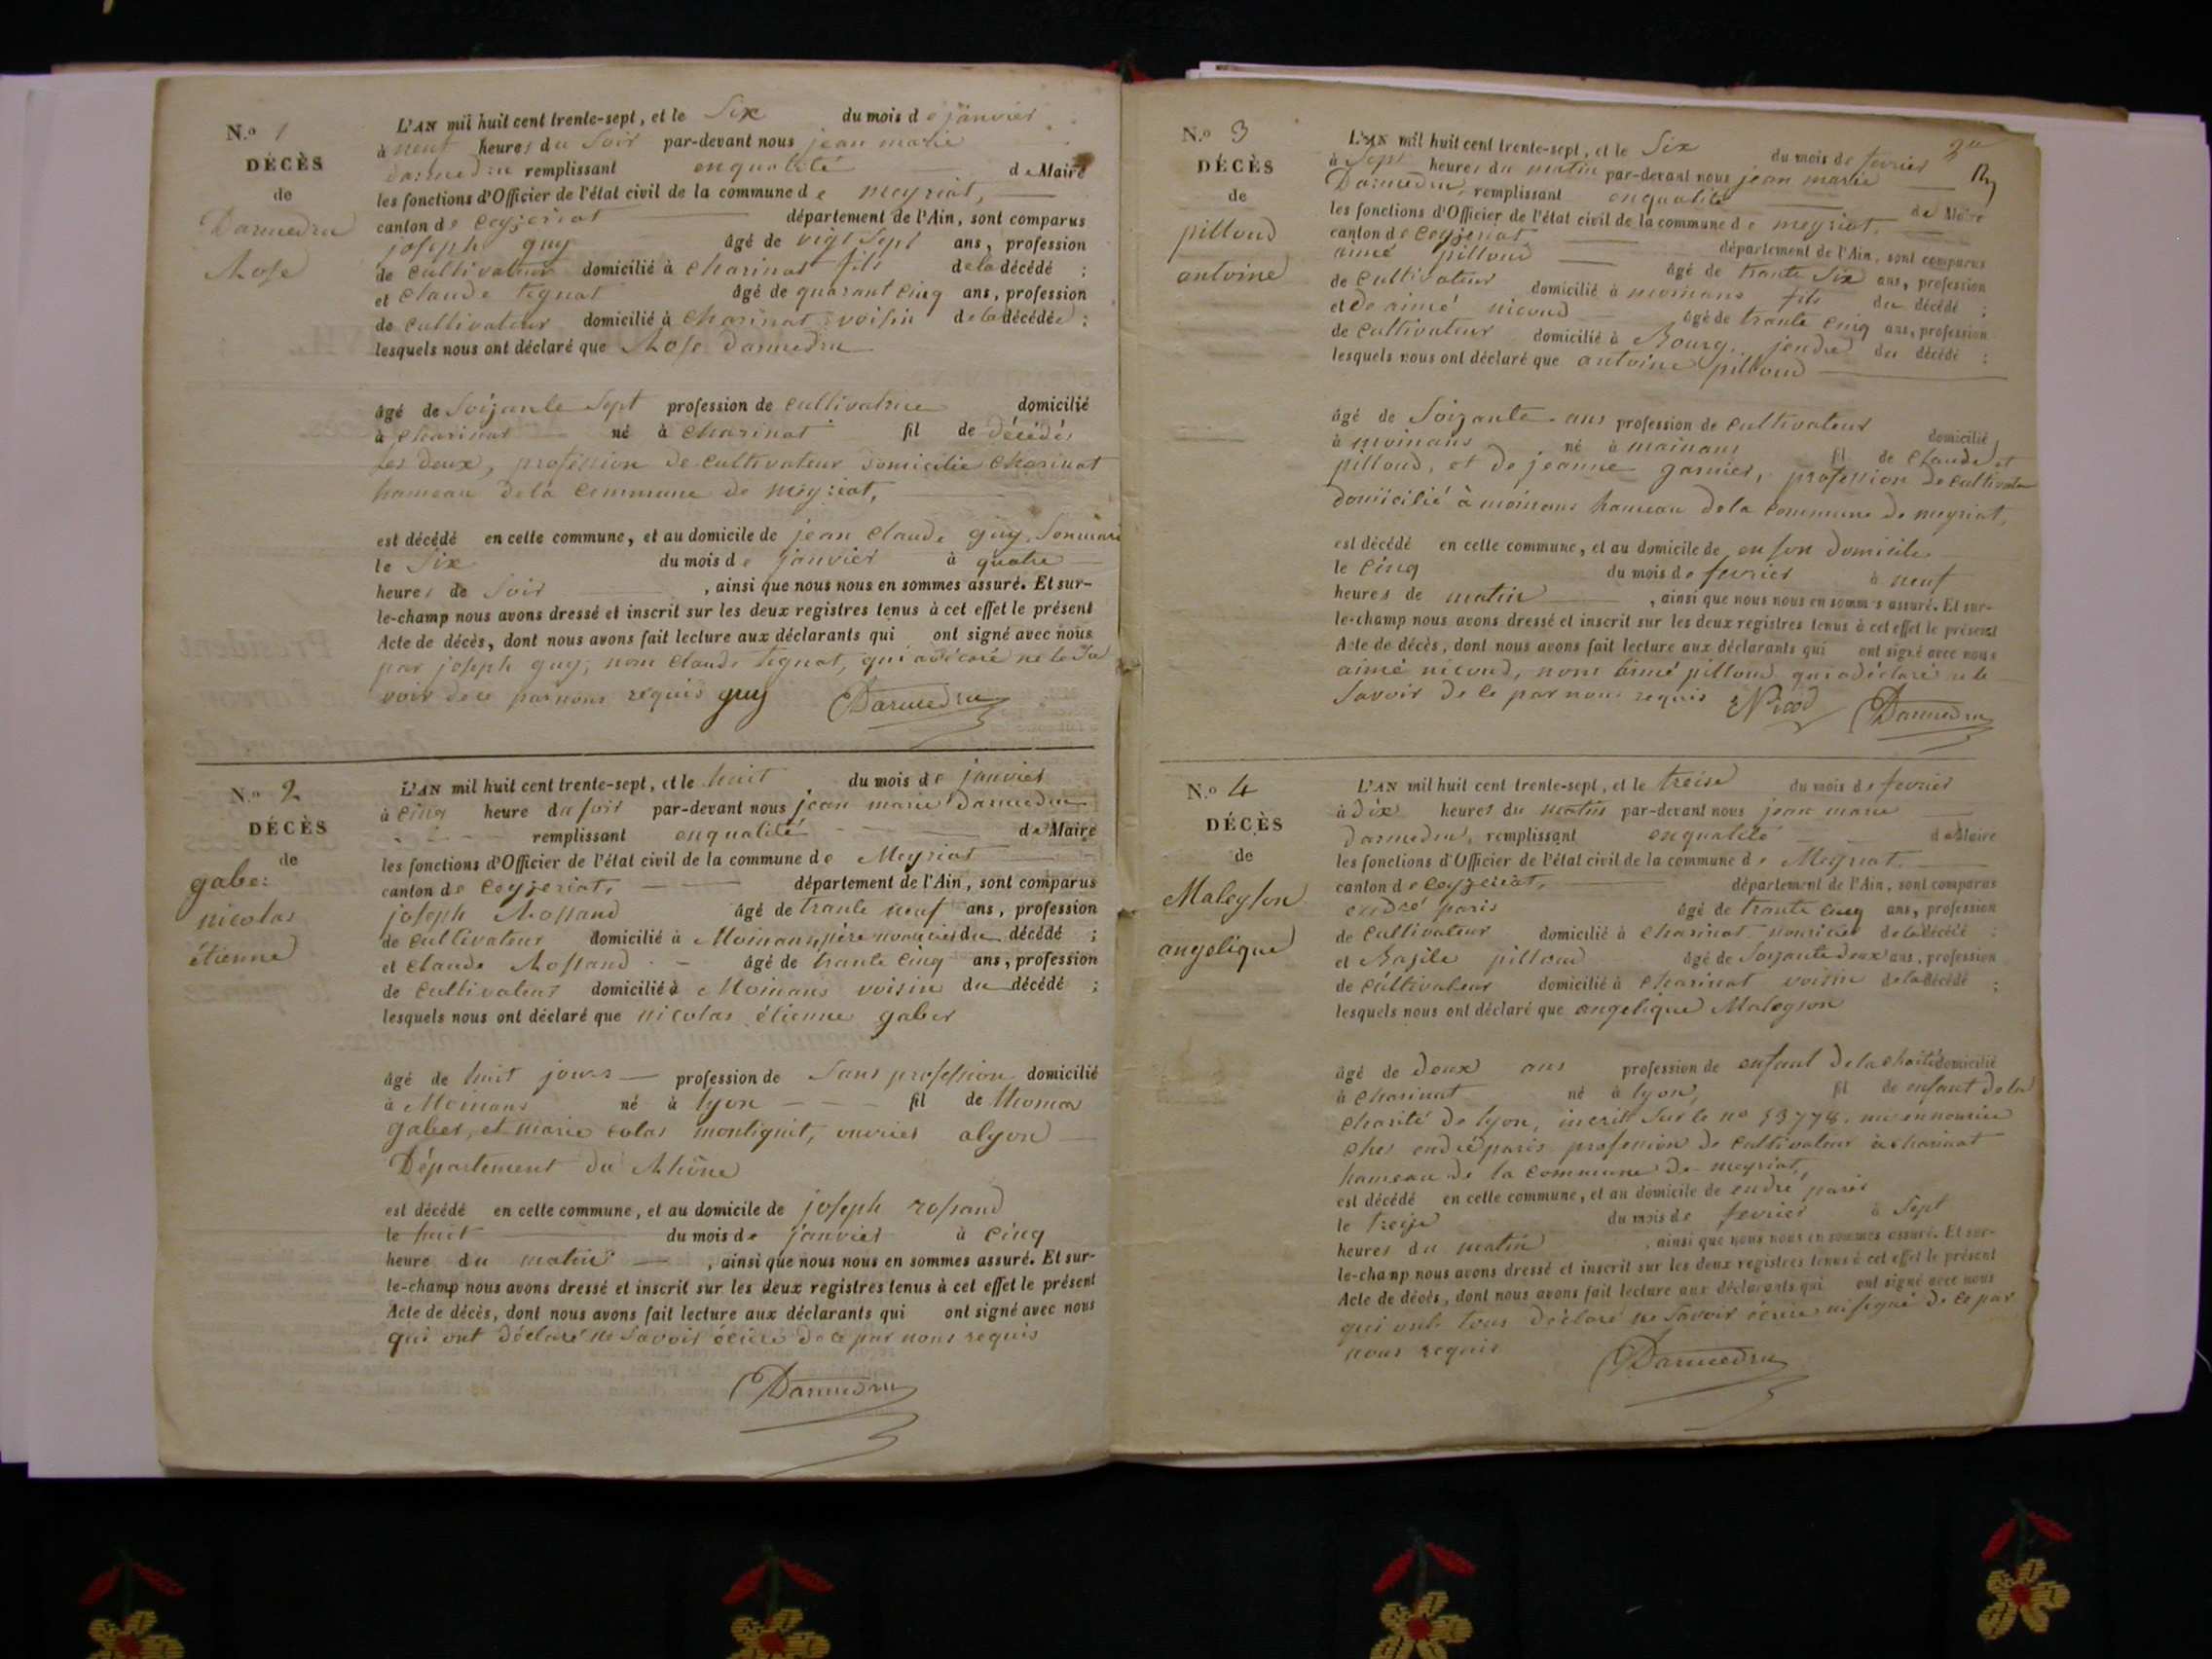 N.º 1
DÉCÈS
de
Darmedru
Rose
L'AN mil huit cent trente-sept, et le Six du mois de janvier
à neuf heures du Soir par-devant nous jean marie
darmedru remplissant enqualité de Maire
les fonctions d'Officier de l'état civil de la commune de meyriat,
canton de Ceyzeriat département de l'Ain, sont comparus
joseph guy âgé de vigt Sept ans, profession
de Cultivateur domicilié à Charinat fils de la décédé ;
et Claude tegnat âgé de quarant Cinq ans, profession
de Cultivateur domicilié à Charinat voisin de la décédée :
lesquels nous ont déclaré que Rose darmedru
âgé de Soizante Sept profession de Cultivatrice domicilié
à Charinat né à Charinat fil de décédés
les deux, profession de Cultivateur domicilié Charinat
hameau dela Commune de meyriat,
est décédé en celle commune, et au domicile de jean Claude guy, Sonmari
le Six du mois de janvier à quatre
heures de Soir , ainsi que nous nous en sommes assuré. Et sur-
le-champ nous avons dressé et inscrit sur les deux registres tenus à cet effet le présent
Acte de décès, dont nous avons fait lecture aux déclarants qui ont signé avec nous
par joseph guy, nom Claude tegnat, qui a déclaré ne le Sa
voir dece parnous requis guy Darmedru
N.º 2
DÉCÈS
de
gaber
nicolas
étienne
L'AN mil huit cent trente-sept, et le huit du mois de janvier
à Cinq heure du soir par-devant nous jean marie Darmedru
remplissant enqualité de Maire
les fonctions d'Officier de l'état civil de la commune de Meyriat
canton de Ceyzeriat, département de l'Ain, sont comparus
joseph Rossand âgé de trante neuf ans, profession
de Cultivateur domicilié à Moinans, père nouricier du décédé ;
et Claude Rossand âgé de trante Cinq ans, profession
de Cultivateur domicilié à Moinans voisin du décédé ;
lesquels nous ont déclaré que nicolas étienne gaber
âgé de huit jours profession de Sans profession domicilié
à Moinans né à lyon fil de thomas
gaber, et marie colas montignit, ouvrier alyon
Département du Rhône
est décédé en celle commune, et au domicile de joseph rossand
le huit du mois de janvier à Cinq
heure du matin , ainsi que nous nous en sommes assuré. Et sur-
le-champ nous avons dressé et inscrit sur les deux registres tenus à cet effet le présent
Acte de décès, dont nous avons fait lecture aux déclarants qui ont signé avec nous
qui ont déclaré ne Savoir écrire de ce par nous requis
Darmedru
N.º 3
DÉCÈS
de
pilloud
antoine
L'AN mil huit cent trente-sept, et le Six du mois de fevrier
à Sept heures du matin par-devant nous jean marie
Darmedru, remplissant enqualité de Maire
les fonctions d'Officier de l'état civil de la commune de meyriat.
canton de Ceyzeriat département de l'Ain, sont comparus
aimé pilloud âgé de trante Six ans, profession
de Cultivateur domicilié à moinans fils du décédé ;
et de aimé nicoud âgé de trante Cinq ans, profession
de Cultivateur domicilié à Bourg, jendre du décédé :
lesquels nous ont déclaré que antoine pilloud
âgé de Soizante ans profession de Cultivateur domicilié
à moinans né à mainans fil de Claude et
pilloud, et de jeanne garnier, profession de Cultivateur
domicilié à moinans hameau dela Commune de meyriat,
est décédé en celle commune, et au domicile de en son domicile
le Cinq du mois de fevrier à neuf
heures de matin , ainsi que nous nous en sommes assuré. Et sur-
le-champ nous avons dressé et inscrit sur les deux registres tenus à cet effet le présent
Acte de décès, dont nous avons fait lecture aux déclarants qui ont signé avec nous
aimé nicoud, nom aimé pilloud qui a déclaré ne le
Savoir de Ce par nous requis Nicod Darmedru
N.º 4
DÉCÈS
de
Maleyson
angelique
L'AN mil huit cent trente-sept, et le treise du mois de fevrier
à dix heures du matin par-devant nous jean marie
darmedru, remplissant enqualité de Maire
les fonctions d'Officier de l'état civil de la commune de Meyriat.
canton de Ceyzeriat, département de l'Ain, sont comparus
endré paris âgé de trante Cinq ans, profession
de Cultivateur domicilié à Charinat nouricier de la décédé ;
et Basile pilloud âgé de Soizante deux ans, profession
de Cultivateur domicilié à Charinat voisin de la décédé ;
lesquels nous ont déclaré que angelique Maleyson
âgé de deux ans profession de enfant dela Charité domicilié
à Charinat né à lyon, fil de enfant dela
Charité de lyon, incrit Sur le no 53778, mi ennourice
Ches endré paris profession de Cultivateur à Charinat
hameau de la Commune de meyriat,
est décédé en celle commune, et au domicile de endré paris
le treize du mois de fevrier à Sept
heures du matin , ainsi que nous nous en sommes assuré. Et sur-
le-champ nous avons dressé et inscrit sur les deux registres tenus à cet effet le présent
Acte de décès, dont nous avons fait lecture aux déclarants qui ont signé avec nous
qui onte tous déclaré ne Savoir écrire ni signé de Ce par
nous requis Darmedru